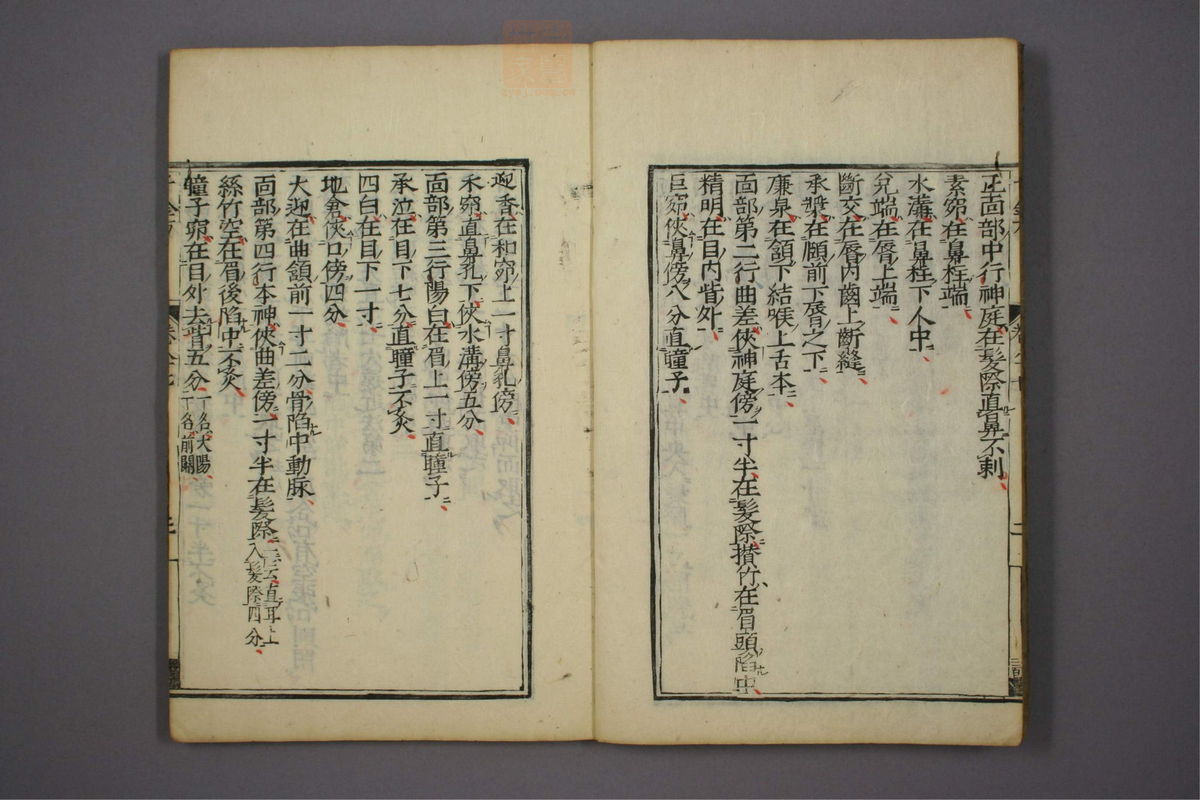 正面部中行神庭在髮際直鼻不刺
素窌在鼻柱端
水溝在鼻柱下人中
兌端在脣上端
斷交在脣內齒上斷縫
承漿在頤前下脣之下
廉泉在頷下結喉上舌本
面部第二行曲差俠神庭傍一寸半在髮際攅竹在眉頭陷中
精明在目內眥外
巨窌俠鼻傍八分直瞳子
迎香在和窌上一寸鼻孔傍
禾窌直鼻孔下俠水溝傍五分
面部第三行陽白在眉上一寸直瞳子
承泣在目下七分直瞳子不灸
四白在目下一寸
地倉俠口傍四分
大迎在曲頷前一寸二分骨陷中動脉
面部第四行本神俠曲差傍一寸半在髮際一云直耳上入髮際四分
絲竹空在眉後陷中不灸
瞳子窌在目外去眥五分一名太陽一名前關